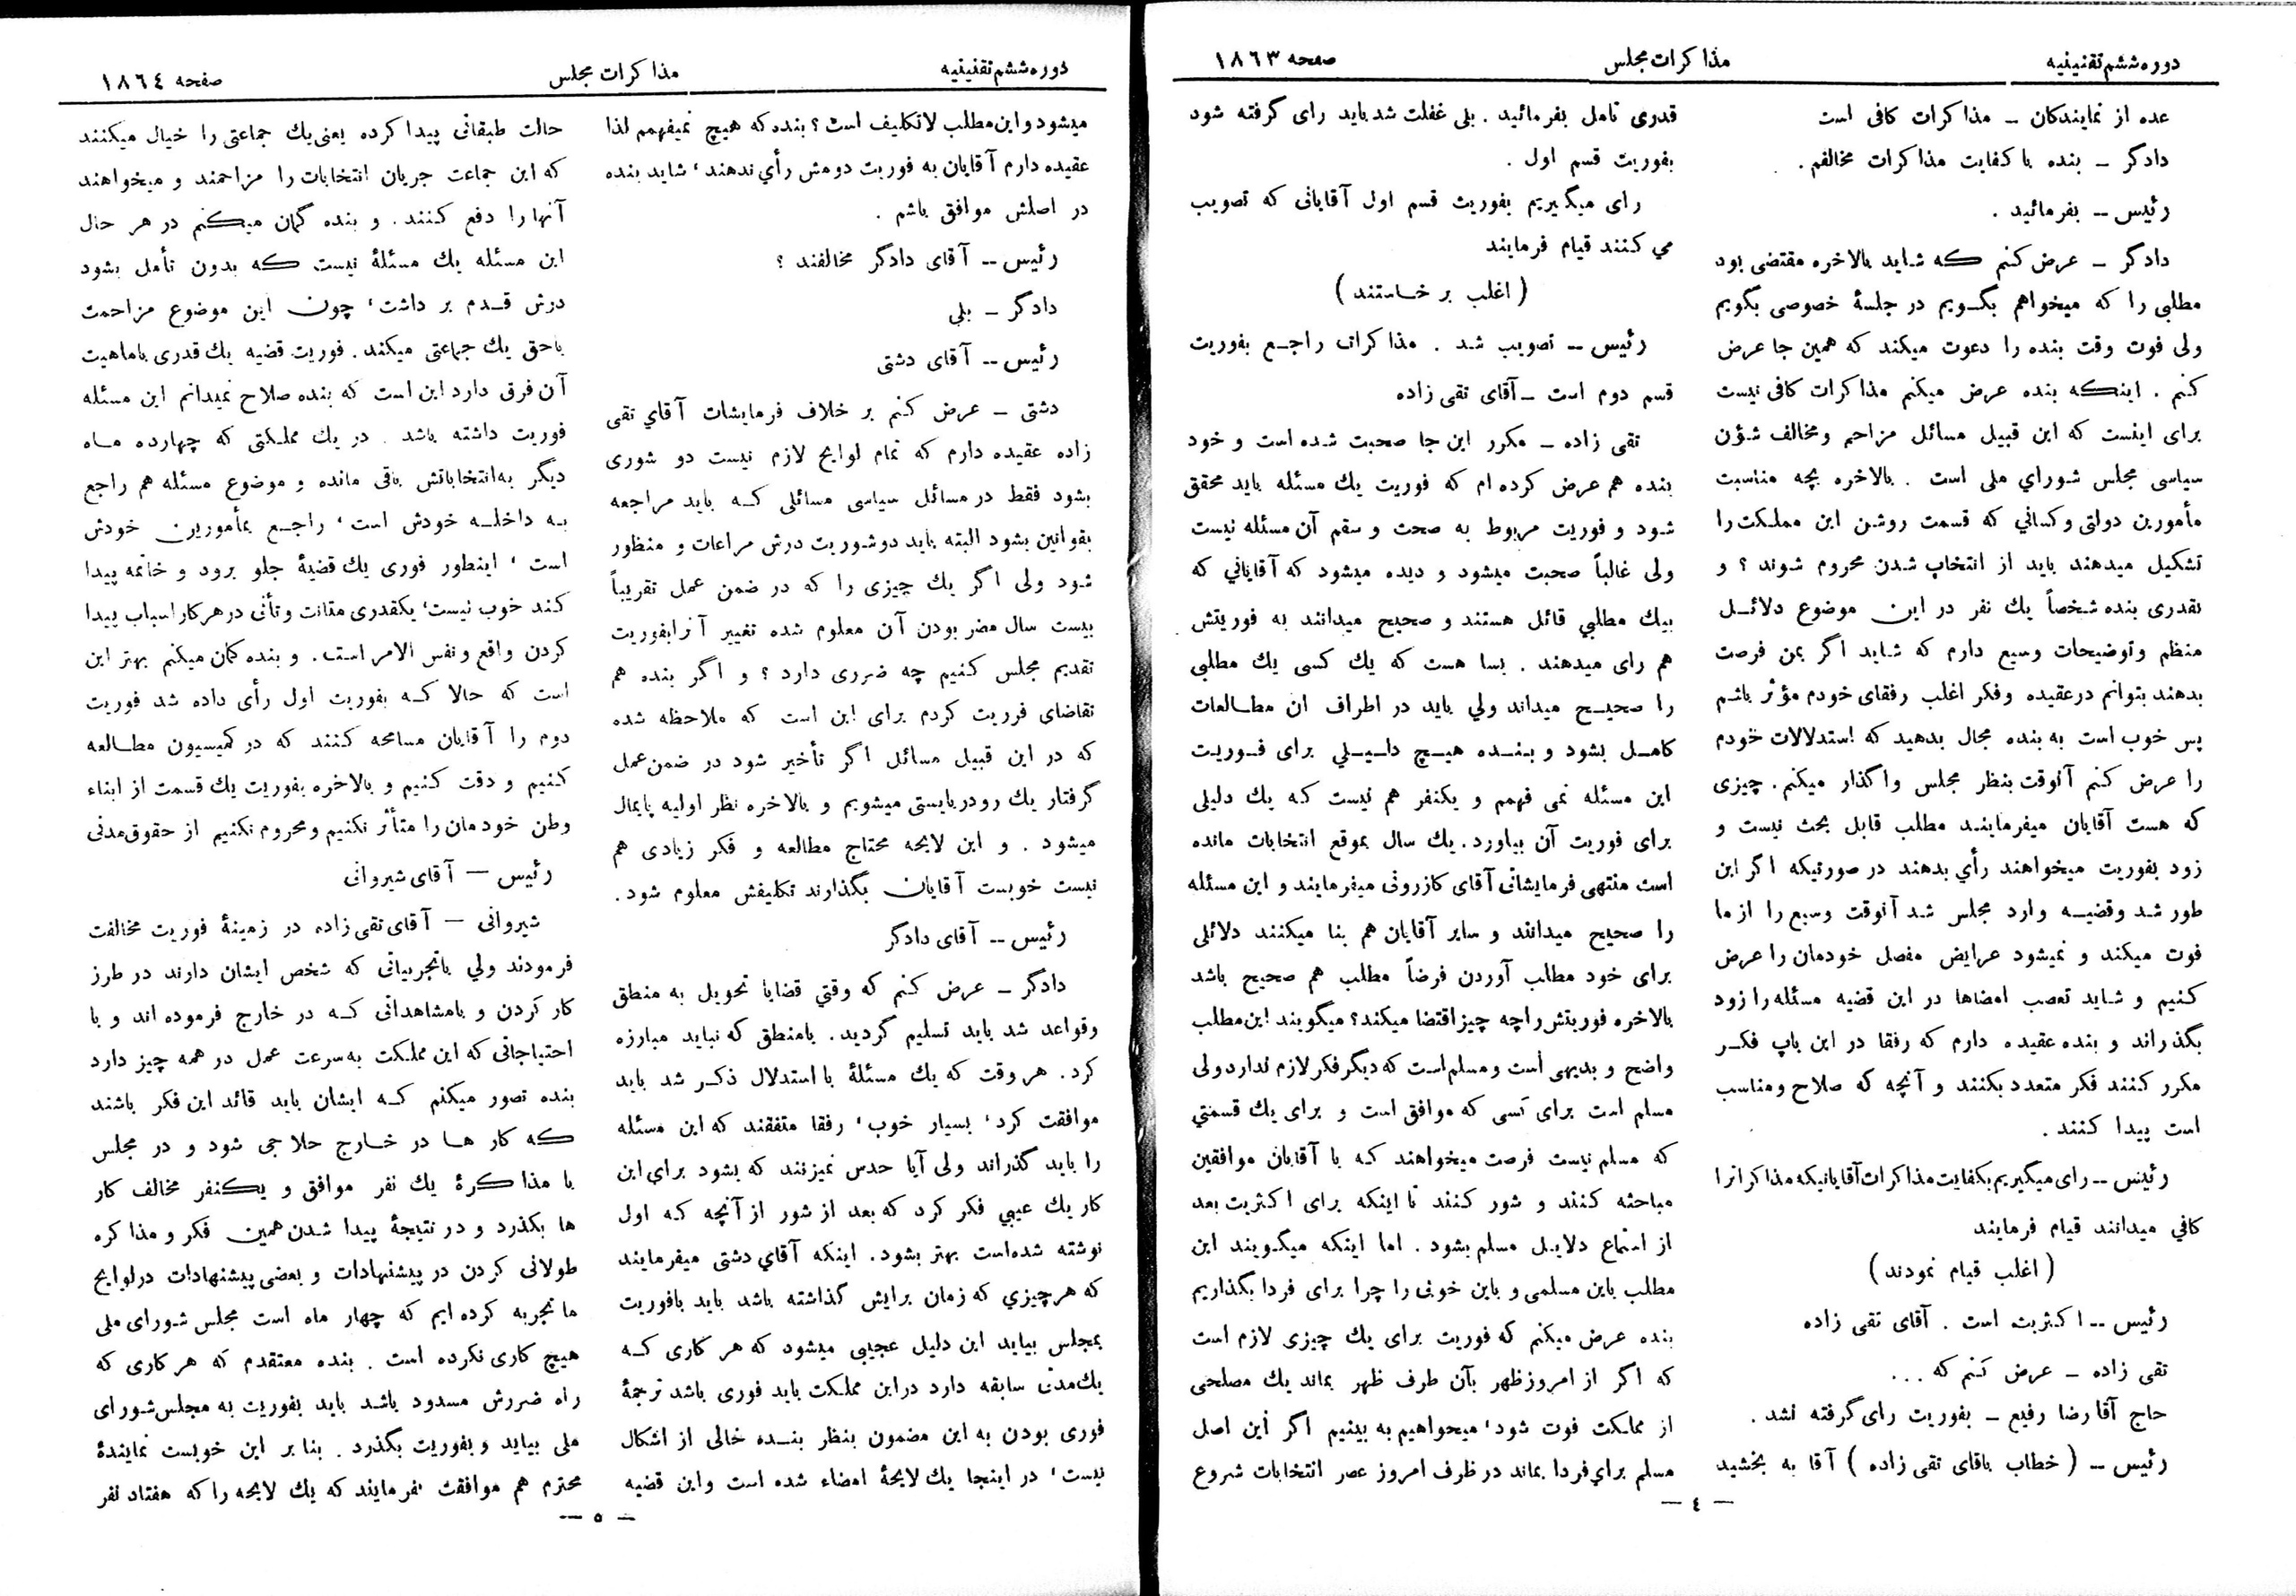 دوره ششم تقنینیه
مذاکرات مجلس
صفحه ۱۸۶۳
عده از نمایندکان – مذاکرات کافی است
دادگر – بنده با کفایت مذاکرات مخالفم .
رئیس – بفرمائید .
دادگر – عرض کنم که شاید بالاخره مقتضی بود
مطلبی را که میخواهم بگویم در جلسهٔ خصوصی بگویم
ولی فوت وقت بنده را دعوت میکند که همین جا عرض
کنم . اینکه بنده عرض میکنم مذاکرات کافی نیست
برای اینست که این قبیل مسائل مزاحم ومخالف شؤن
سیاسی مجلس شورای ملی است . بالاخره بچه مناسبت
مأمورین دولتی وکسانی که قسمت روشن این مملکت را
تشکیل میدهند باید از انتخاب شدن محروم شوند ؟ و
بقدری بنده شخصاً یك نفر در این موضوع دلائل
منظم وتوضیحات وسیع دارم که شاید اگر بمن فرصت
بدهند بتوانم درعقیده وفکر اغلب رفقای خودم مؤثر باشم
پس خوب است به بنده مجال بدهید که استدلالات خودم
را عرض کنم آنوقت بنظر مجلس واگذار میکنم . چیزی
که هست آقایان میفرمایند مطلب قابل بحث نیست و
زود بفوریت میخواهند رأي بدهند در صورتیکه اگر این
طور شد وقضیه وارد مجلس شد آنوقت وسیع را از ما
فوت میکند و نمیشود عرایض مفصل خودمان را عرض
کنیم و شاید تعصب امضاها در این قضیه مسئله را زود
بگذراند و بنده عقیده دارم که رفقا در این باب فکر
مکرر کنند فکر متعدد بکنند و آنچه که صلاح ومناسب
است پیدا کنند .
رئیس – رای میگیریم بکفایت مذاکرات آقایانیکه مذاکراترا
کافي میدانند قیام فرمایند
( اغلب قیام نمودند )
رئیس – اکثریت است . آقای تقی زاده
تقی زاده – عرض کنم که ...
حاج آقا رضا رفیع – بفوریت رای گرفته نشد .
رئیس – ( خطاب باقای تقی زاده ) آقا به بخشید
قدری تامل بفرمائید . بلی غفلت شد باید رای گرفته شود
بفوریت قسم اول .
رای میگیریم بفوریت قسم اول آقایانی که تصویب
مي کنند قیام فرمایند
( اغلب بر خاستند )
رئیس – تصویب شد . مذاکرات راجع بفوریت
قسم دوم است – آقای تقی زاده
تقی زاده – مکرر این جا صحبت شده است و خود
بنده هم عرض کرده ام که فوریت یك مسئله باید محقق
شود و فوریت مربوط به صحت و سقم آن مسئله نیست
ولی غالباً صحبت میشود و دیده میشود که آقایاني که
بیك مطلبي قائل هستند و صحیح میدانند به فوریتش
هم رای میدهند . بسا هست که یك کسی یك مطلبی
را صحیح میداند ولي باید در اطراف ان مطالعات
کامل بشود و بنده هیچ دلیلي برای فوریت
این مسئله نمی فهمم و یکنفر هم نیست که یك دلیلی
برای فوریت آن بیاورد . یك سال بموقع انتخابات مانده
است منتهی فرمایشاتی آقای کازرونی میفرمایند و این مسئله
را صحیح میدانند و سایر آقایان هم بنا میکنند دلائلی
برای خود مطلب آوردن فرضاً مطلب هم صحیح باشد
بالاخره فوریتش راچه چیز اقتضا میکند؟ میگویند این مطلب
واضح و بدیهی است ومسلم است که دیگر فکر لازم ندارد ولی
مسلم است برای کسی که موافق است و برای یك قسمتي
که مسلم نیست فرصت میخواهند که با آقایان موافقین
مباحثه کنند و شور کنند تا اینکه برای اکثریت بعد
از استماع دلایل مسلم بشود . اما اینکه میگویند این
مطلب باین مسلمی و باین خوبی را چرا برای فردا بگذاریم
بنده عرض میکنم که فوریت برای یك چیزی لازم است
که اگر از امروز ظهر بآن طرف ظهر بماند یك مصلحی
از مملکت فوت شود ، میحواهیم به بینیم اگر این اصل
مسلم براي فردا بماند در ظرف امروز عصر انتخابات شروع
— ٤ —
دوره ششم تقنینیه
مذاکرات مجلس
صفحه ۱۸٦٤
میشود واین مطلب لاتکلیف است ؟ بنده که هیچ نمیفهمم لذا
عقیده دارم آقایان به فوریت دومش رأي ندهند ، شاید بنده
در اصلش موافق باشم .
رئیس – آقای دادگر مخالفند ؟
دادگر – بلي
رئیس – آقای دشتی
دشتی – عرض کنم بر خلاف فرمایشات آقاي تقی
زاده عقیده دارم که تمام لوایح لازم نیست دو شوری
بشود فقط در مسائل سیاسی مسائلی که باید مراجعه
بقوانین بشود البته باید دوشوریت درش مراعات و منظور
شود ولی اگر یك چیزی را که در ضمن عمل تقریباً
بیست سال مضر بودن آن معلوم شده تغییر آنرا بفوریت
تقدیم مجلس کنیم چه ضرری دارد ؟ و اگر بنده هم
تقاضای فرریت کردم برای این است که ملاحظه شده
که در این قبیل مسائل اگر تأخیر شود در ضمن عمل
گرفتار یك رودربایستی میشویم و بالاخره نظر اولیه پایمال
میشود . و این لایحه محتاج مطالعه و فکر زیادی هم
نیست خوبست آقایان بگذارند تکلیفش معلوم شود .
رئیس – آقای دادگر
دادگر – عرض کنم که وقتي قضایا تحویل به منطق
وقواعد شد باید تسلیم گردید . بامنطق که نباید مبارزه
کرد . هر وقت که یك مسئلهٔ با استدلال ذکر شد باید
موافقت کرد ، بسیار خوب ، رفقا متفقند که این مسئله
را باید گذراند ولی آیا حدس نمیزنند که بشود براي این
کار یك عیبي فکر کرد که بعد از شور از آنچه که اول
نوشته شده است بهتر بشود . اینکه آقاي دشتی میفرمایند
که هرچیزي که زمان برایش گذاشته باشد باید بافوریت
بمجلس بیاید این دلیل عجیبی میشود که هر کاری که
یك مدتی سابقه دارد در این مملکت باید فوری باشد ترجمهٔ
فوری بودن به این مضمون بنظر بنده خالی از اشکال
نیست ، در اینجا یك لایحهٔ امضاء شده است واین قضیه
حالت طبقاتی پیدا کرده یعنی یك جماعتی را خیال میکنند
که این جماعت جریان انتخابات را مزاحمند و میخواهند
آنها را دفع کنند . و بنده گمان میکنم در هر حال
این مسئله یك مسئلهٔ نیست که بدون تأمل بشود
درش قدم بر داشت ، چون این موضوع مزاحمت
باحق یك جماعتی میکند . فوریت قضیه یك قدری باماهیت
آن فرق دارد این است که بنده صلاح نمیدانم این مسئله
فوریت داشته باشد . در یك مملکتی که چهارده ماه
دیگر به انتخاباتش باقی مانده و موضوع مسئله هم راجع
به داخله خودش است ، راجع بمأمورین خودش
است ، اینطور فوری یك قضیهٔ جلو برود و خاتمه پیدا
کند خوب نیست ، یکقدری متانت وتأنی در هر کار اسباب پیدا
کردن واقع ونفس الامر است . و بنده گمان میکنم بهتر این
است که حالا که بفوریت اول رأی داده شد فوریت
دوم را آقایان مسامحه کنند که در کمیسیون مطالعه
کنیم و دقت کنیم و بالاخره بفوریت یك قسمت از ابناء
وطن خودمان را متأثر نکنیم ومحروم نکنیم از حقوق مدنی
رئیس — آقای شیروانی
شیروانی — آقای تقی زاده در زمینهٔ فوریت مخالفت
فرمودند ولي باتجربیاتی که شخص ایشان دارند در طرز
کار کردن و بامشاهداتی که در خارج فرموده اند و با
احتیاجاتی که این مملکت به سرعت عمل در همه چیز دارد
بنده تصور میکنم که ایشان باید قائد این فکر باشند
که کار ها در خارج حلاجی شود و در مجلس
با مذاکرهٔ یك نفر موافق و یکنفر مخالف کار
ها بگذرد و در نتیجهٔ پیدا شدن همین فکر و مذاکره
طولانی کردن در پیشنهادات و بعضی پیشنهادات در لوایح
ما تجربه کرده ایم که چهار ماه است مجلس شورای ملی
هیچ کاری نکرده است . بنده معتقدم که هر کاری که
راه ضررش مسدود باشد باید بفوریت به مجلس شورای
ملی بیاید و بفوریت بگذرد . بنا بر این خوبست نمایندهٔ
محترم هم موافقت بفرمایند که یك لایحه را که هفتاد نفر
— ٥ —